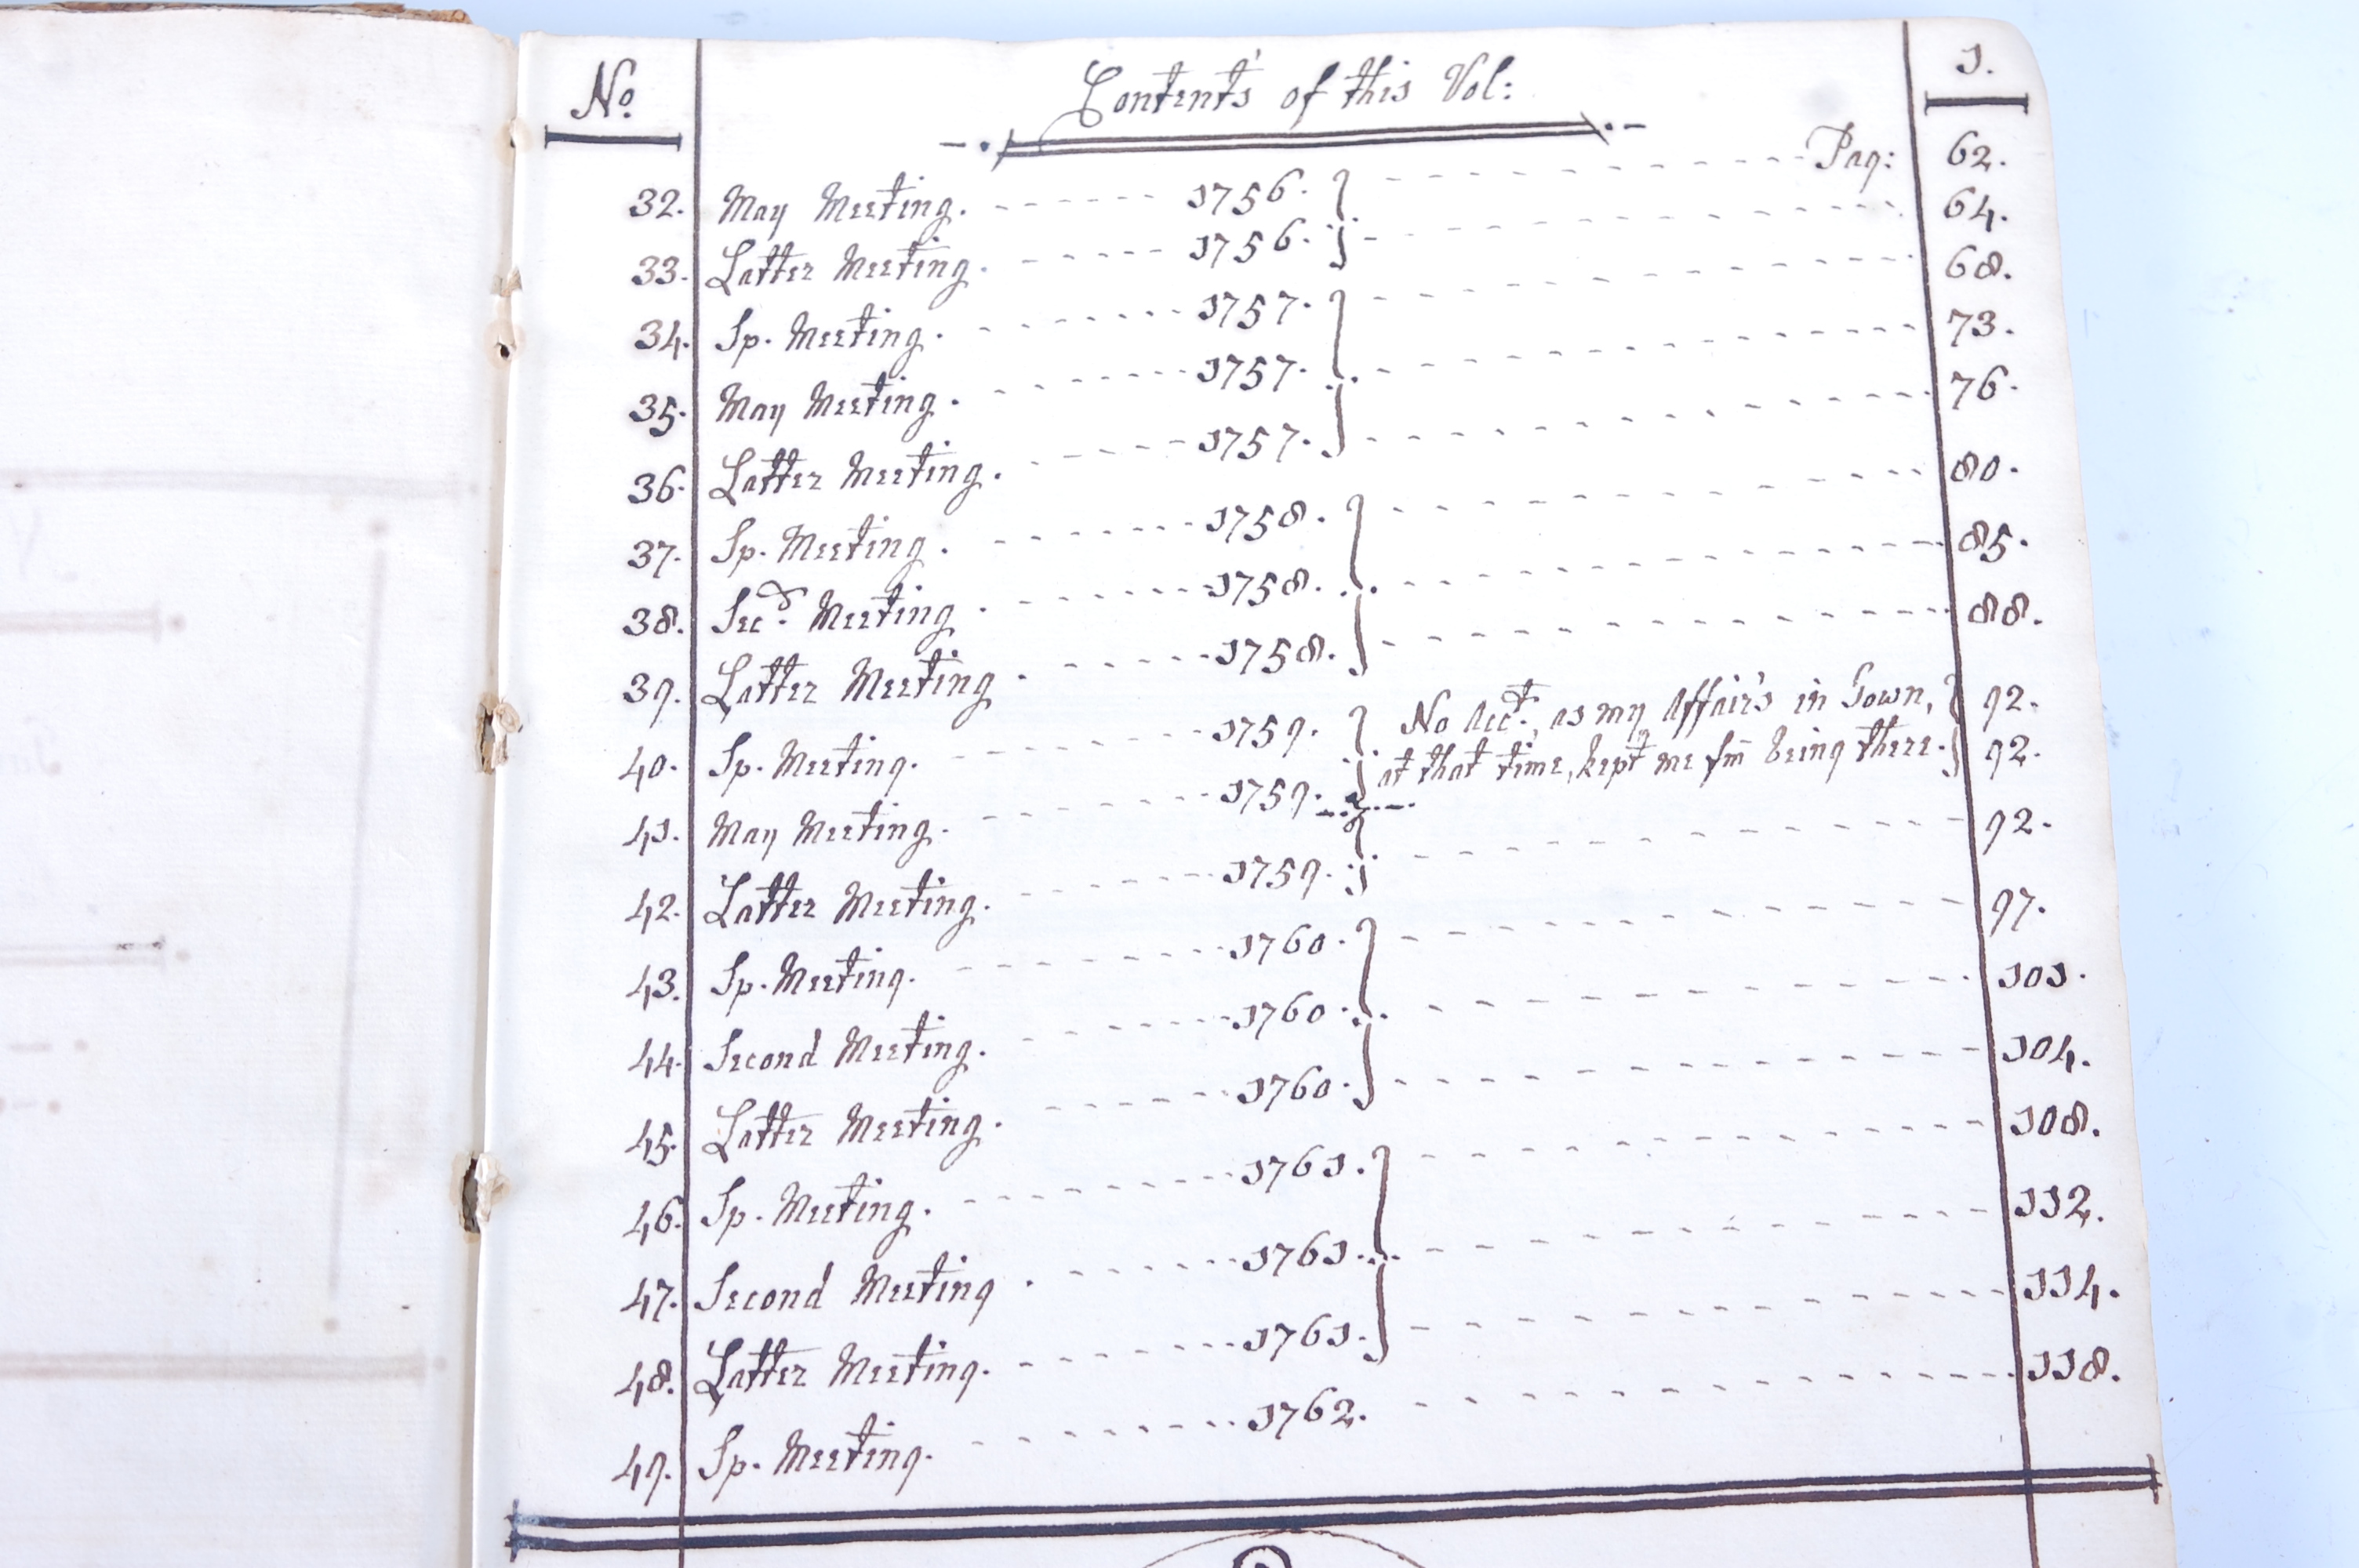 No. Contents of this Vol: 1.
32. May Meeting. 1756. Pag: 62.
33. Latter Meeting. 1756. 64.
34. Sp. Meeting. 1757. 68.
35. May Meeting. 1757. 73.
36. Latter Meeting. 1757. 76.
37. Sp. Meeting. 1758. 80.
38. Secd. Meeting. 1758. 85.
39. Latter Meeting. 1758. 88.
40. Sp. Meeting. 1759. No Acct., as my Affairs in Town, 92.
41. May Meeting. 1759. at that time, kept me fm being there. 92.
42. Latter Meeting. 1759. 92.
43. Sp. Meeting. 1760. 97.
44. Second Meeting. 1760. 101.
45. Latter Meeting. 1760. 104.
46. Sp. Meeting. 1761. 108.
47. Second Meeting. 1761. 112.
48. Latter Meeting. 1761. 114.
49. Sp. Meeting. 1762. 118.